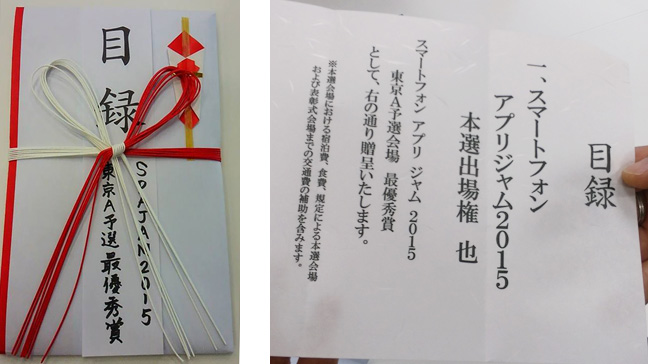 目録
SPAJAM2015
東京A予選最優秀賞
目録
一、スマートフォン
アプリジャム2015
本選出場権 也
スマートフォン アプリ ジャム 2015
東京A予選会場 最優秀賞
として、右の通り贈呈いたします。
※本選会場における宿泊費、食費、規定による本選会場
および表彰式会場までの交通費の補助を含みます。